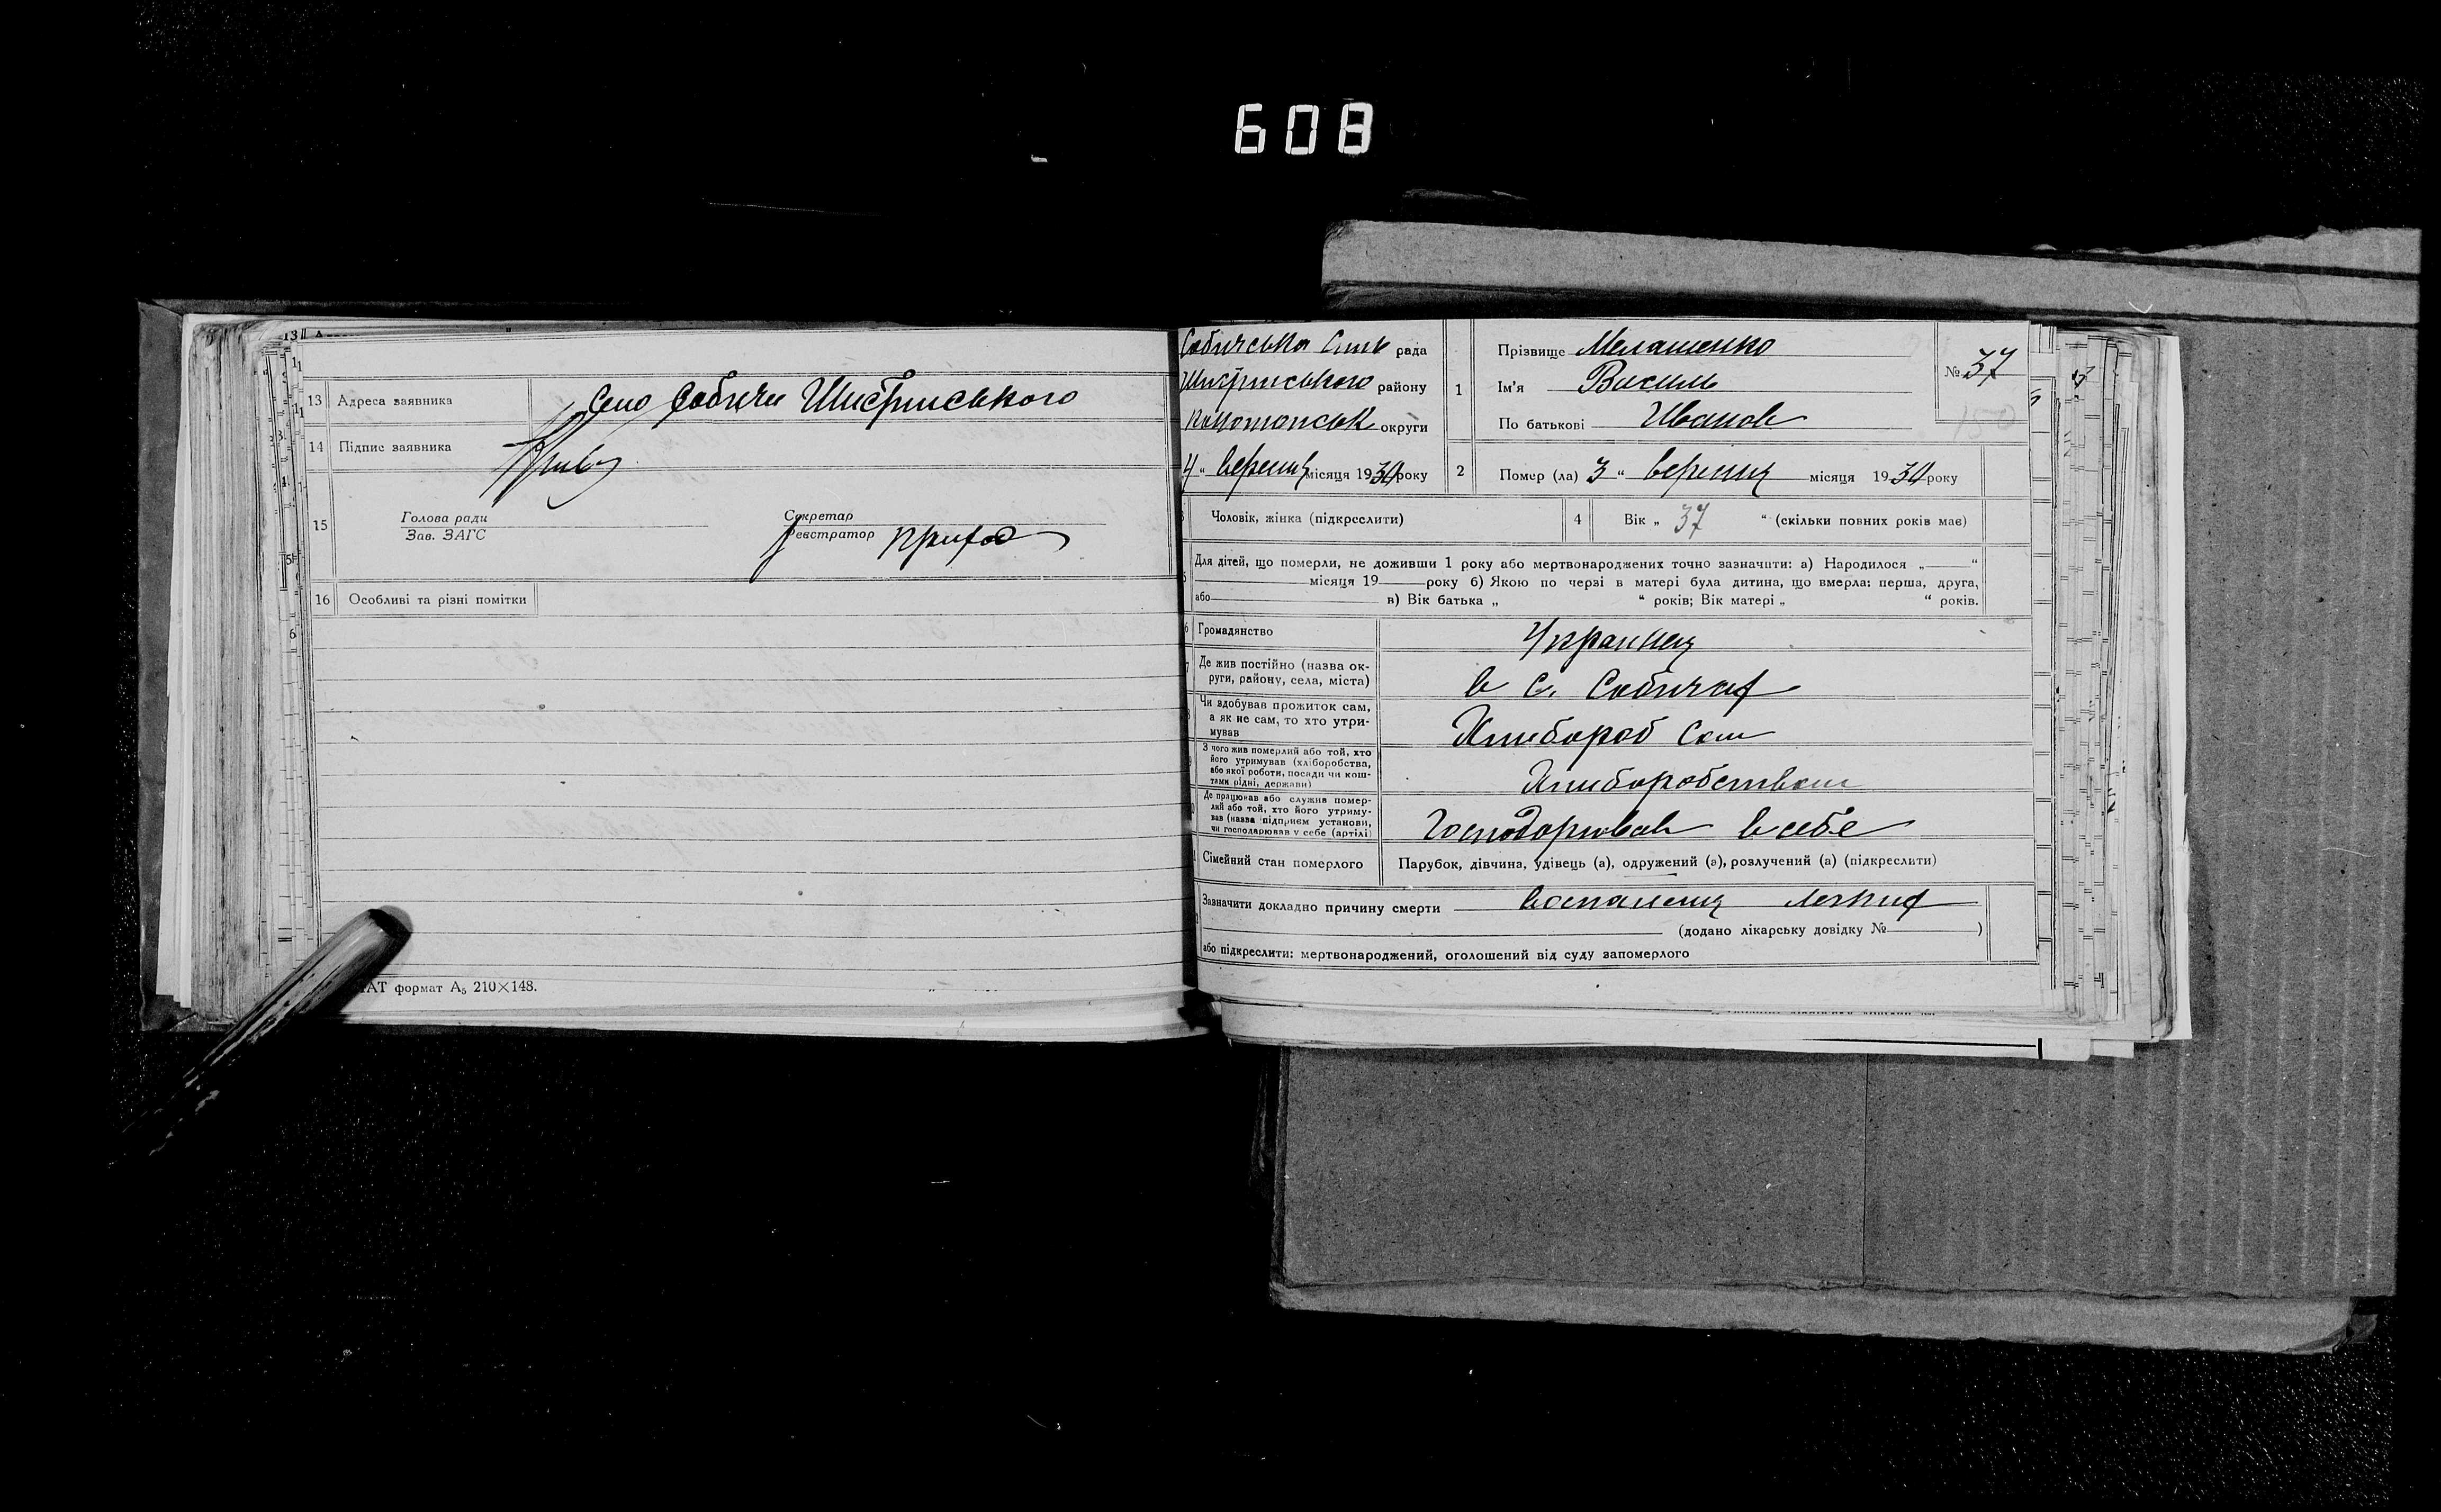 608
13 Адреса заявника Село Собичи Шистринського
14 Підпис заявника
15 Голова ради
Зав. ЗАГС
Секретар
Реєстратор Приход
16 Особливі та різні помітки
ТАТ формат А5 210×148.
Собичська Сильс рада
Шистринського району
Конотопськ округи
4 „ вересня місяця 1930 року
1 Прізвище Мелашенко
Ім'я Василь
По батькові Иванов
№ 37
2 Помер (ла) 3 “ вересня місяця 1930 року
Чоловік, жінка (підкреслити)
4 Вік „ 37 “ (скільки повних років має)
Для дітей, що померли, не доживши 1 року або мертвонароджених точно зазначити: а) Народилося „ “
місяця 19 року б) Якою по черзі в матері була дитина, що вмерла: перша, друга,
або в) Вік батька „ “ років; Вік матері „ “ років.
6 Громадянство Украинец
7 Де жив постійно (назва ок-
руги, району, села, міста) в с. Собичах
Чи здобував прожиток сам,
а як не сам, то хто утри-
мував Хлибороб Сам
З чого жив померлий або той, хто
його утримував (хліборобства,
або якої роботи, посади чи кош-
тами рідні, держави) Хлиборобством
Де працював або служив помер-
лий або той, хто його утриму-
вав (назва підприєм установи,
чи господарював у себе (артілі) Господорював в себе
Сімейний стан померлого Парубок, дівчина, удівець (а), одружений (а), розлучений (а) (підкреслити)
Зазначити докладно причину смерти воспаления легких
(додано лікарську довідку № )
або підкреслити: мертвонароджений, оголошений від суду запомерлого